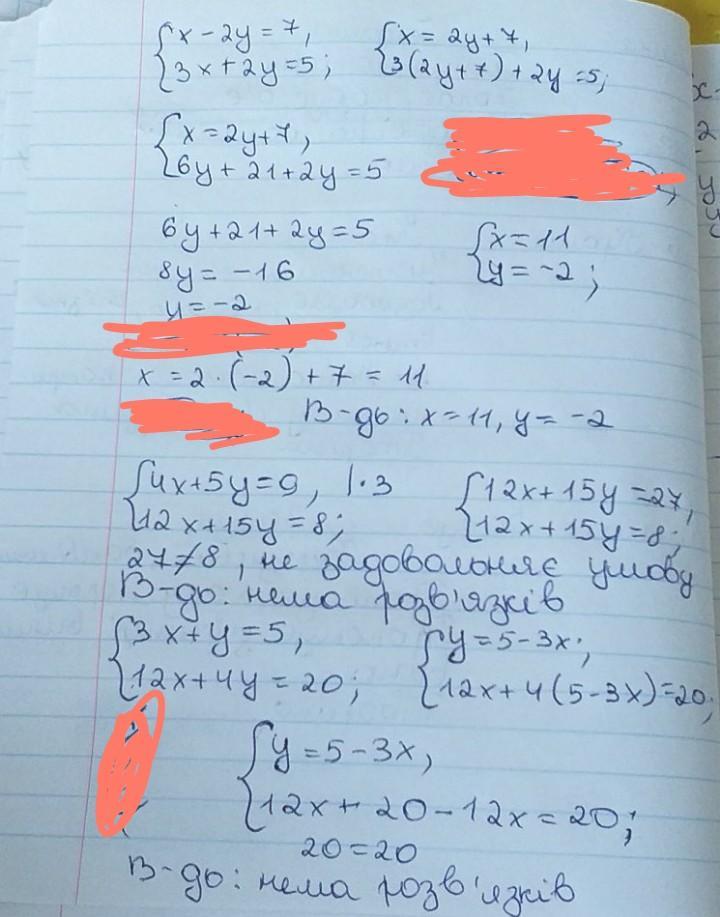 x - 2y = 7,
3x + 2y = 5;
x = 2y + 7,
3(2y + 7) + 2y = 5;
x = 2y + 7,
6y + 21 + 2y = 5
6y + 21 + 2y = 5
8y = -16
y = -2
x = 11
y = -2;
x = 2 · (-2) + 7 = 11
В-дь: x = 11, y = -2
4x + 5y = 9, | · 3
12x + 15y = 8;
12x + 15y = 27,
12x + 15y = 8;
27 ≠ 8, не задовольняє умову
В-дь: нема розв'язків
3x + y = 5,
12x + 4y = 20;
y = 5 - 3x;
12x + 4(5 - 3x) = 20;
y = 5 - 3x,
12x + 20 - 12x = 20;
20 = 20
В-дь: нема розв'язків